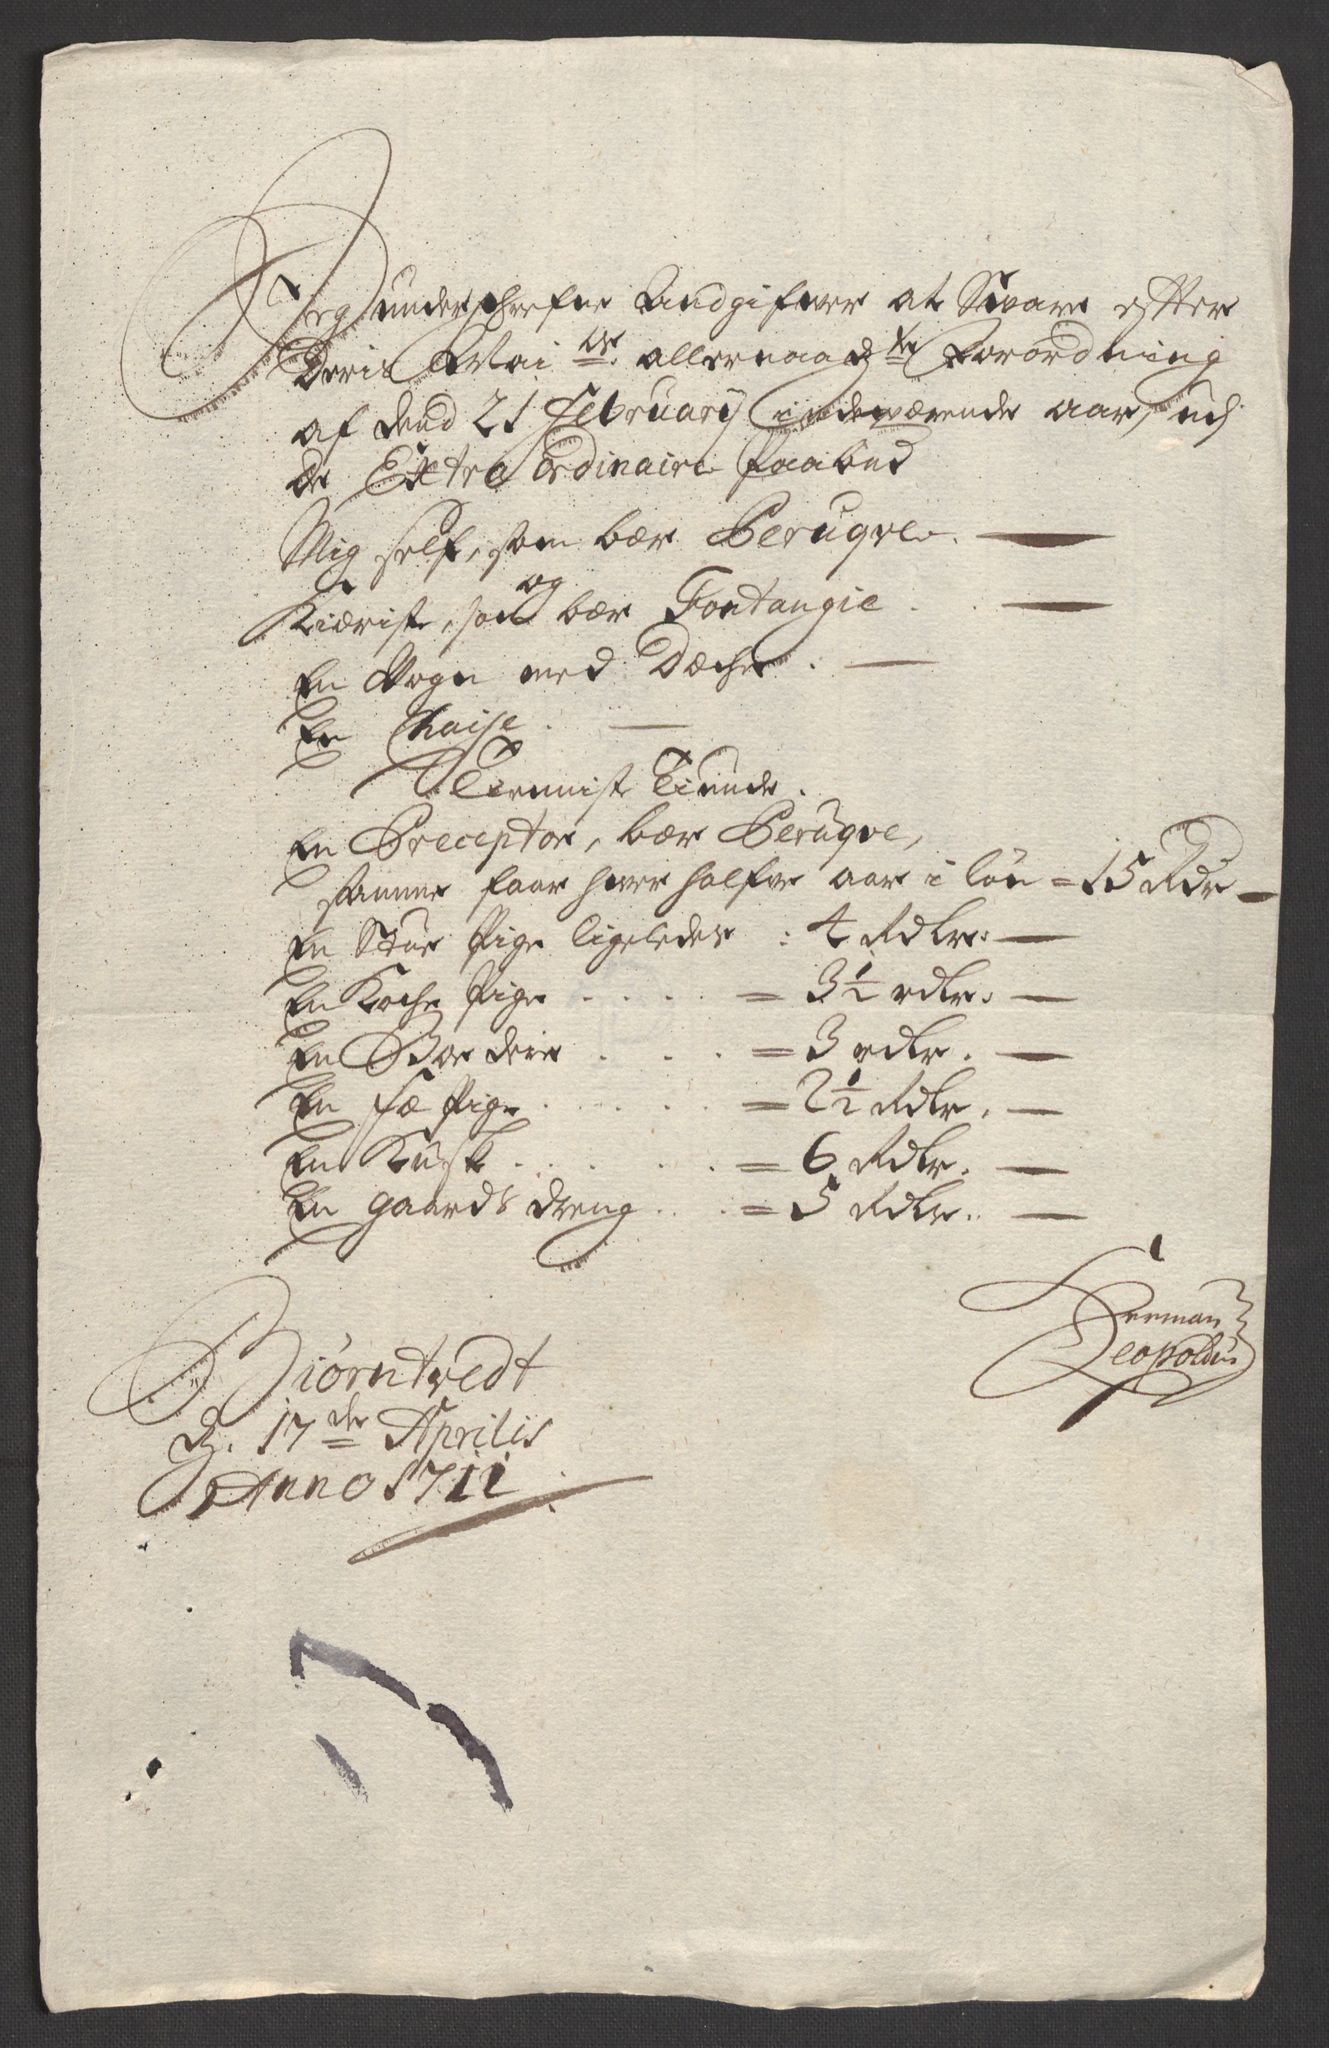 Jeg underschrefne Andgifver at Svare efter
Deris Mai:ts allernaad:ste Forordning
af dend 21 February indeværende aar, udj
de Extra ordinaire Paabud
Mig self, som bær Peruqve.
Kiæriste, som og bær Fontangie .
En Vogn med Dæche .
En Chaise .
Tiennist Tiunde .
En Preceptor, bær Peruqve,
samme faar hver halfve aar i løn = 15 Rdr
En Stue Pige ligeledes : 4 Rdlr:
En Koche Pige . . . . = 3½ rdlr:
En Bordeie . . . = 3 rdlr.
En Fæ Pige . . . . . = 2½ Rdlr.
En Kusk . . . . . = 6 Rdlr.
En gaards dreng . . . = 5 Rdlr.
Herman
Leopoldus
Biørntvedt
D. 17de Aprilis
Anno 1711